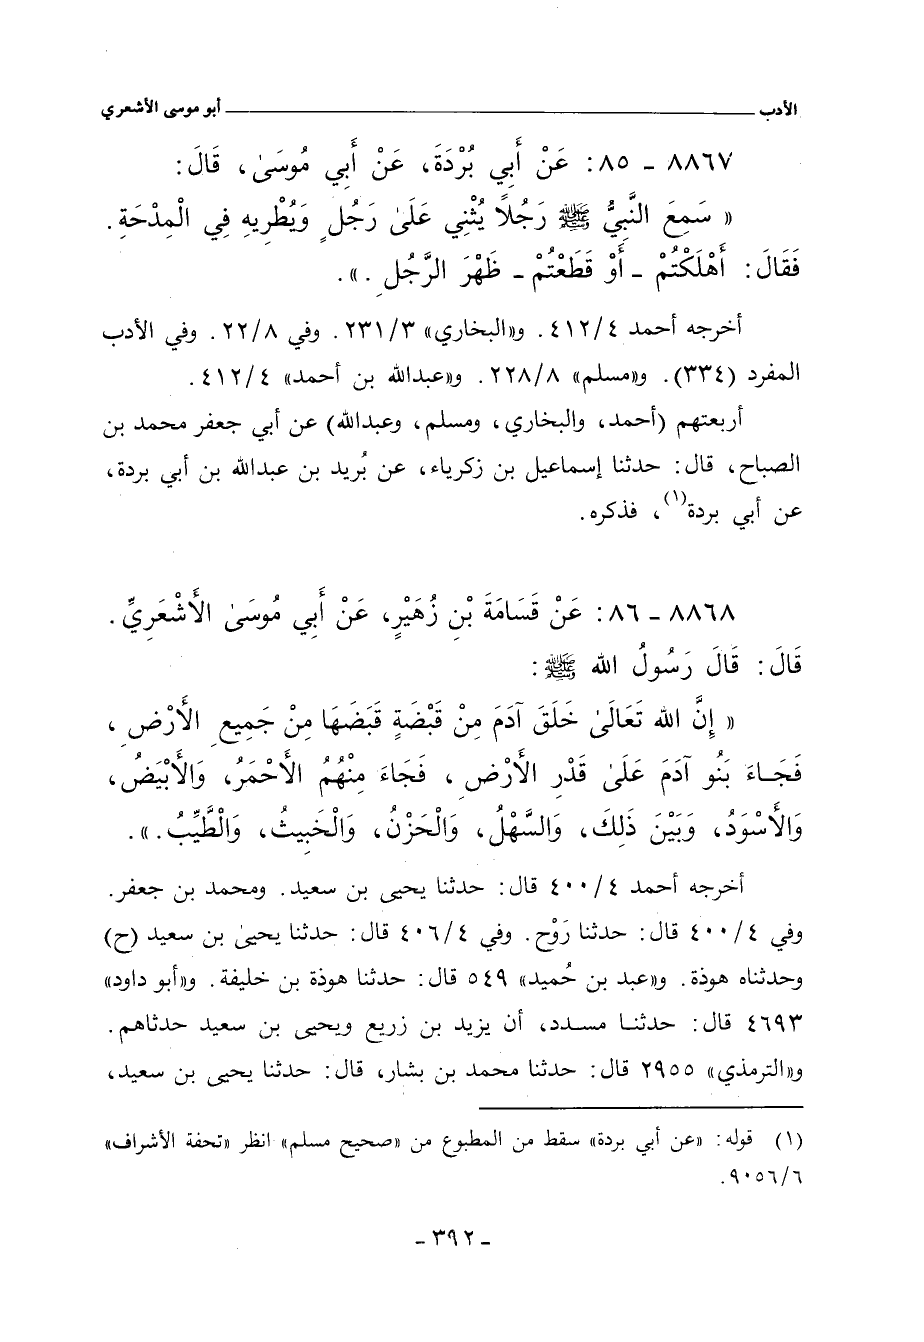 الأدب ــــــــــ أبو موسى الأشعري
٨٨٦٧ - ٨٥ : عَنْ أَبِي بُرْدَةَ، عَنْ أَبِي مُوسَىٰ، قَالَ :
« سَمِعَ النَّبِيُّ ﷺ رَجُلًا يُثْنِي عَلَىٰ رَجُلٍ وَيُطْرِيهِ فِي الْمِدْحَةِ .
فَقَالَ : أَهْلَكْتُمْ - أَوْ قَطَعْتُمْ - ظَهْرَ الرَّجُلِ .» .
أخرجه أحمد ٤١٢/٤ . و«البخاري» ٢٣١/٣ . وفي ٢٢/٨ . وفي الأدب
المفرد (٣٣٤) . و«مسلم» ٢٢٨/٨ . و«عبدالله بن أحمد» ٤١٢/٤ .
أربعتهم (أحمد، والبخاري، ومسلم، وعبدالله) عن أبي جعفر محمد بن
الصباح، قال : حدثنا إسماعيل بن زكرياء، عن بُريد بن عبدالله بن أبي بردة،
عن أبي بردة(١)، فذكره .
٨٨٦٨ - ٨٦ : عَنْ قَسَامَةَ بْنِ زُهَيْرٍ، عَنْ أَبِي مُوسَىٰ الأَشْعَرِيِّ .
قَالَ : قَالَ رَسُولُ الله ﷺ :
« إِنَّ الله تَعَالَىٰ خَلَقَ آدَمَ مِنْ قَبْضَةٍ قَبَضَهَا مِنْ جَمِيعِ الأَرْضِ ،
فَجَاءَ بَنُو آدَمَ عَلَىٰ قَدْرِ الأَرْضِ ، فَجَاءَ مِنْهُمُ الأَحْمَرُ، وَالأَبْيَضُ،
وَالأَسْوَدُ، وَبَيْنَ ذَلِكَ، وَالسَّهْلُ، وَالْحَزْنُ، وَالْخَبِيثُ، وَالْطَّيِّبُ .» .
أخرجه أحمد ٤٠٠/٤ قال : حدثنا يحيى بن سعيد . ومحمد بن جعفر .
وفي ٤٠٠/٤ قال : حدثنا رَوْح . وفي ٤٠٦/٤ قال : حدثنا يحيىٰ بن سعيد (ح)
وحدثناه هوذة . و«عبد بن حُميد» ٥٤٩ قال : حدثنا هوذة بن خليفة . و«أبو داود»
٤٦٩٣ قال : حدثنا مسدد، أن يزيد بن زريع ويحيى بن سعيد حدثاهم .
و«الترمذي» ٢٩٥٥ قال : حدثنا محمد بن بشار، قال : حدثنا يحيى بن سعيد،
(١) قوله : «عن أبي بردة» سقط من المطبوع من «صحيح مسلم» انظر «تحفة الأشراف»
٩٠٥٦/٦ .
- ٣٩٢ -